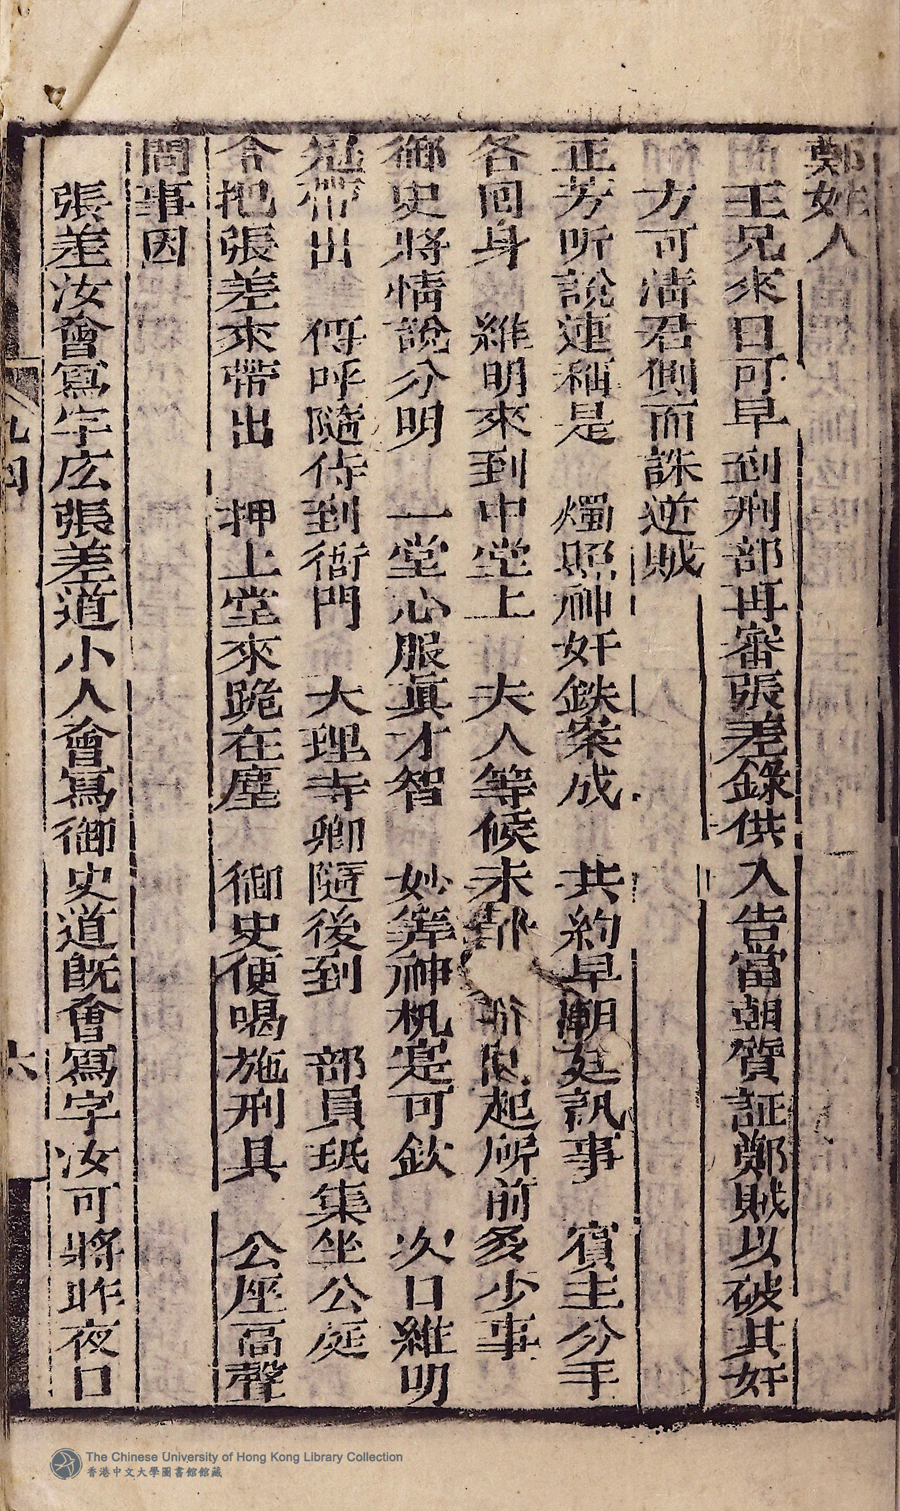 鄭奸人
王兄來日可早到刑部再審張差錄供入告當朝質証鄭賊以破其奸
方可淸君側而誅逆賊
正芳听說連稱是 燭照神奸鉄案成 共約早潮廷訊事 賓主分手
各囘身 維明來到中堂上 夫人等候未 起所前多少事
御史將情說分明 一堂心服眞才智 妙筭神机寔可欽 次口維明
冠帶出 傳呼隨侍到衙門 大理寺卿隨後到 部員珽集坐公庭
令把張差來帶出 押上堂來跪在塵 御史便喝施刑具 公座高聲
問事因
張差汝會寫字広張差道小人會寫御史道旣會寫字汝可將昨夜口
九四
六
The Chinese University of Hong Kong Library Collection
香港中文大學圖書館館藏